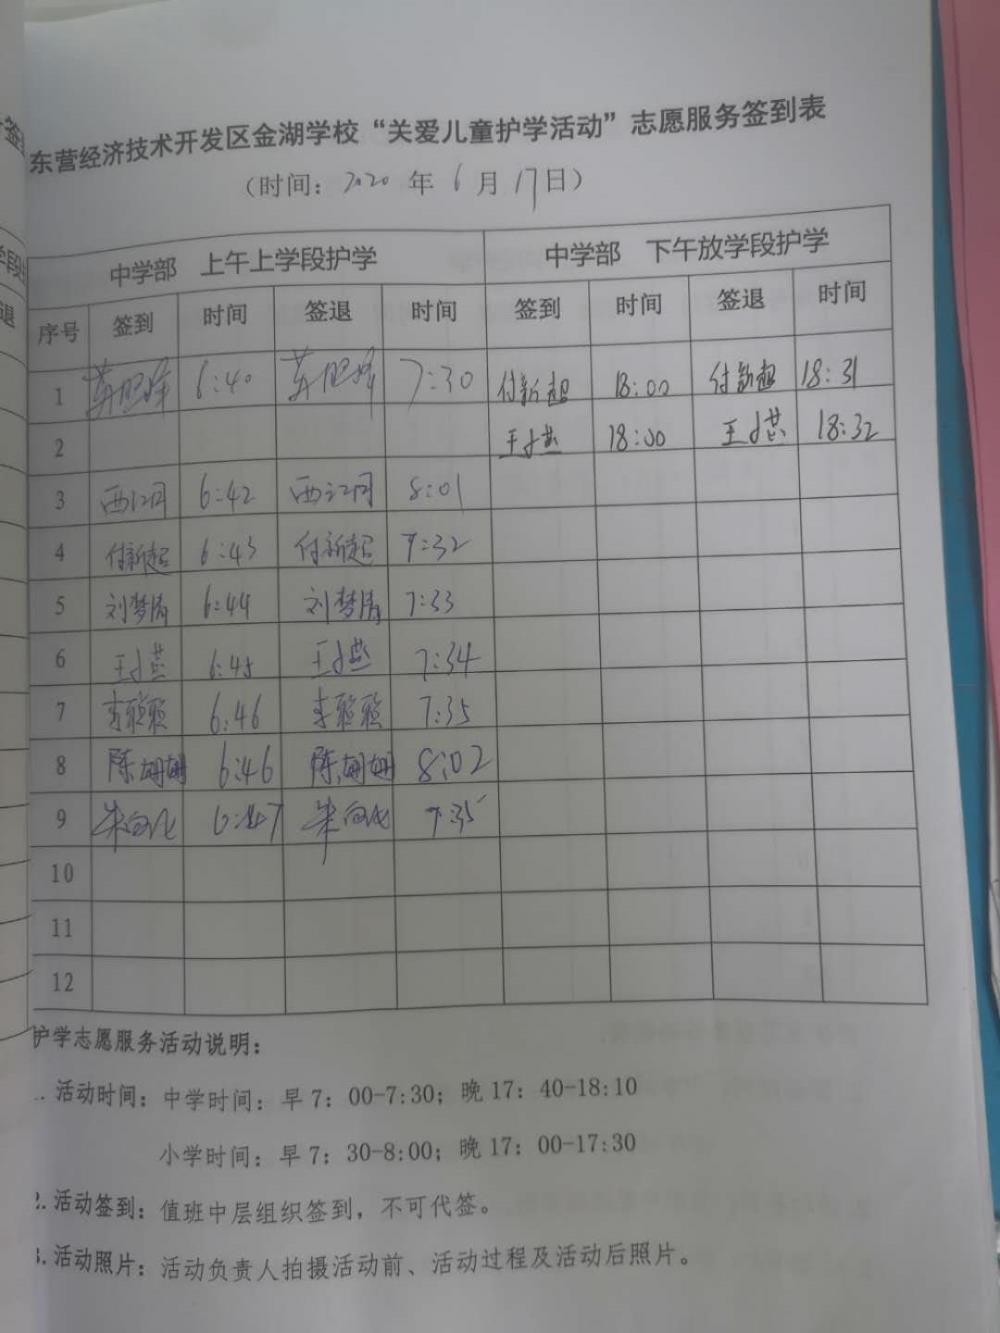 东营经济技术开发区金湖学校“关爱儿童护学活动”志愿服务签到表
（时间：2020 年 6 月 17日）
中学部 上午上学段护学 中学部 下午放学段护学
序号 签到 时间 签退 时间 签到 时间 签退 时间
1 6:40 7:30 付新超 18:00 付新超 18:31
2 18:00 18:32
3 6:42 8:01
4 付新超 6:43 付新超 7:32
5 刘梦 6:44 刘梦 7:33
6 6:45 7:34
7 6:46 7:35
8 陈姗姗 6:46 陈姗姗 8:02
9 朱 6:47 朱 7:35
10
11
12
护学志愿服务活动说明：
活动时间：中学时间：早7：00-7:30；晚17：40-18:10
小学时间：早7：30-8:00；晚17：00-17:30
2.活动签到：值班中层组织签到，不可代签。
3.活动照片：活动负责人拍摄活动前、活动过程及活动后照片。